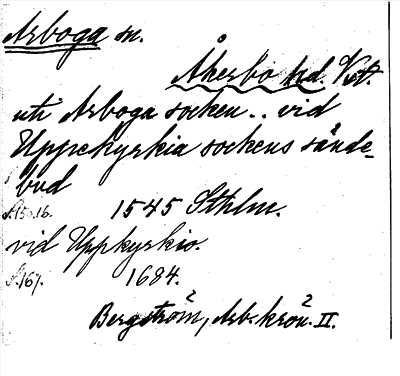 Arboga sn.
Åkerbo hd. Vstm.
uti Arboga socken.. vid
Uppekyrkia sockens sände-
bud
S. 15-16. 1545 Sthlm.
vid Uppkyrkio.
S. 167. 1684.
Bergström, Arb. krön. II.